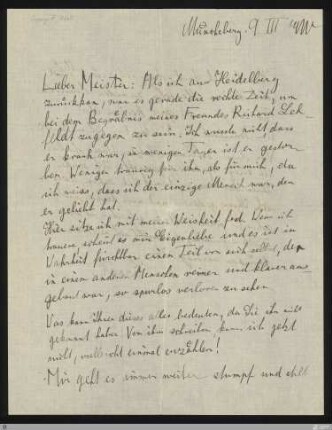 Müncheberg. 9 III
Lieber Meister: Als ich aus Heidelberg
zurückkam, war es gerade die rechte Zeit, um
bei dem Begräbnis meines Freundes Richard Leh-
feldt zugegen zu sein. Ich wusste nicht dass
er krank war, in wenigen Tagen ist er gestor-
ben. Weniger traurig für ihn, als für mich, da
ich weiss, dass ich der einzige Mensch war, den
er geliebt hat.
Hier sitze ich mit meiner Weisheit fest. Wenn ich
traure scheint es mir Eigenliebe und es ist in
Wahrheit furchtbar einen Teil von sich selbst, der
in einem anderen Menschen reiner und klarer aus-
gebaut war, so spurlos verloren zu sehen
Was kann Ihnen dieses alles bedeuten, da Sie ihn nicht
gekannt haben. Von ihm schreiben kann ich jetzt
nicht, vielleicht einmal erzählen!
Mir geht es immer weiter stumpf und